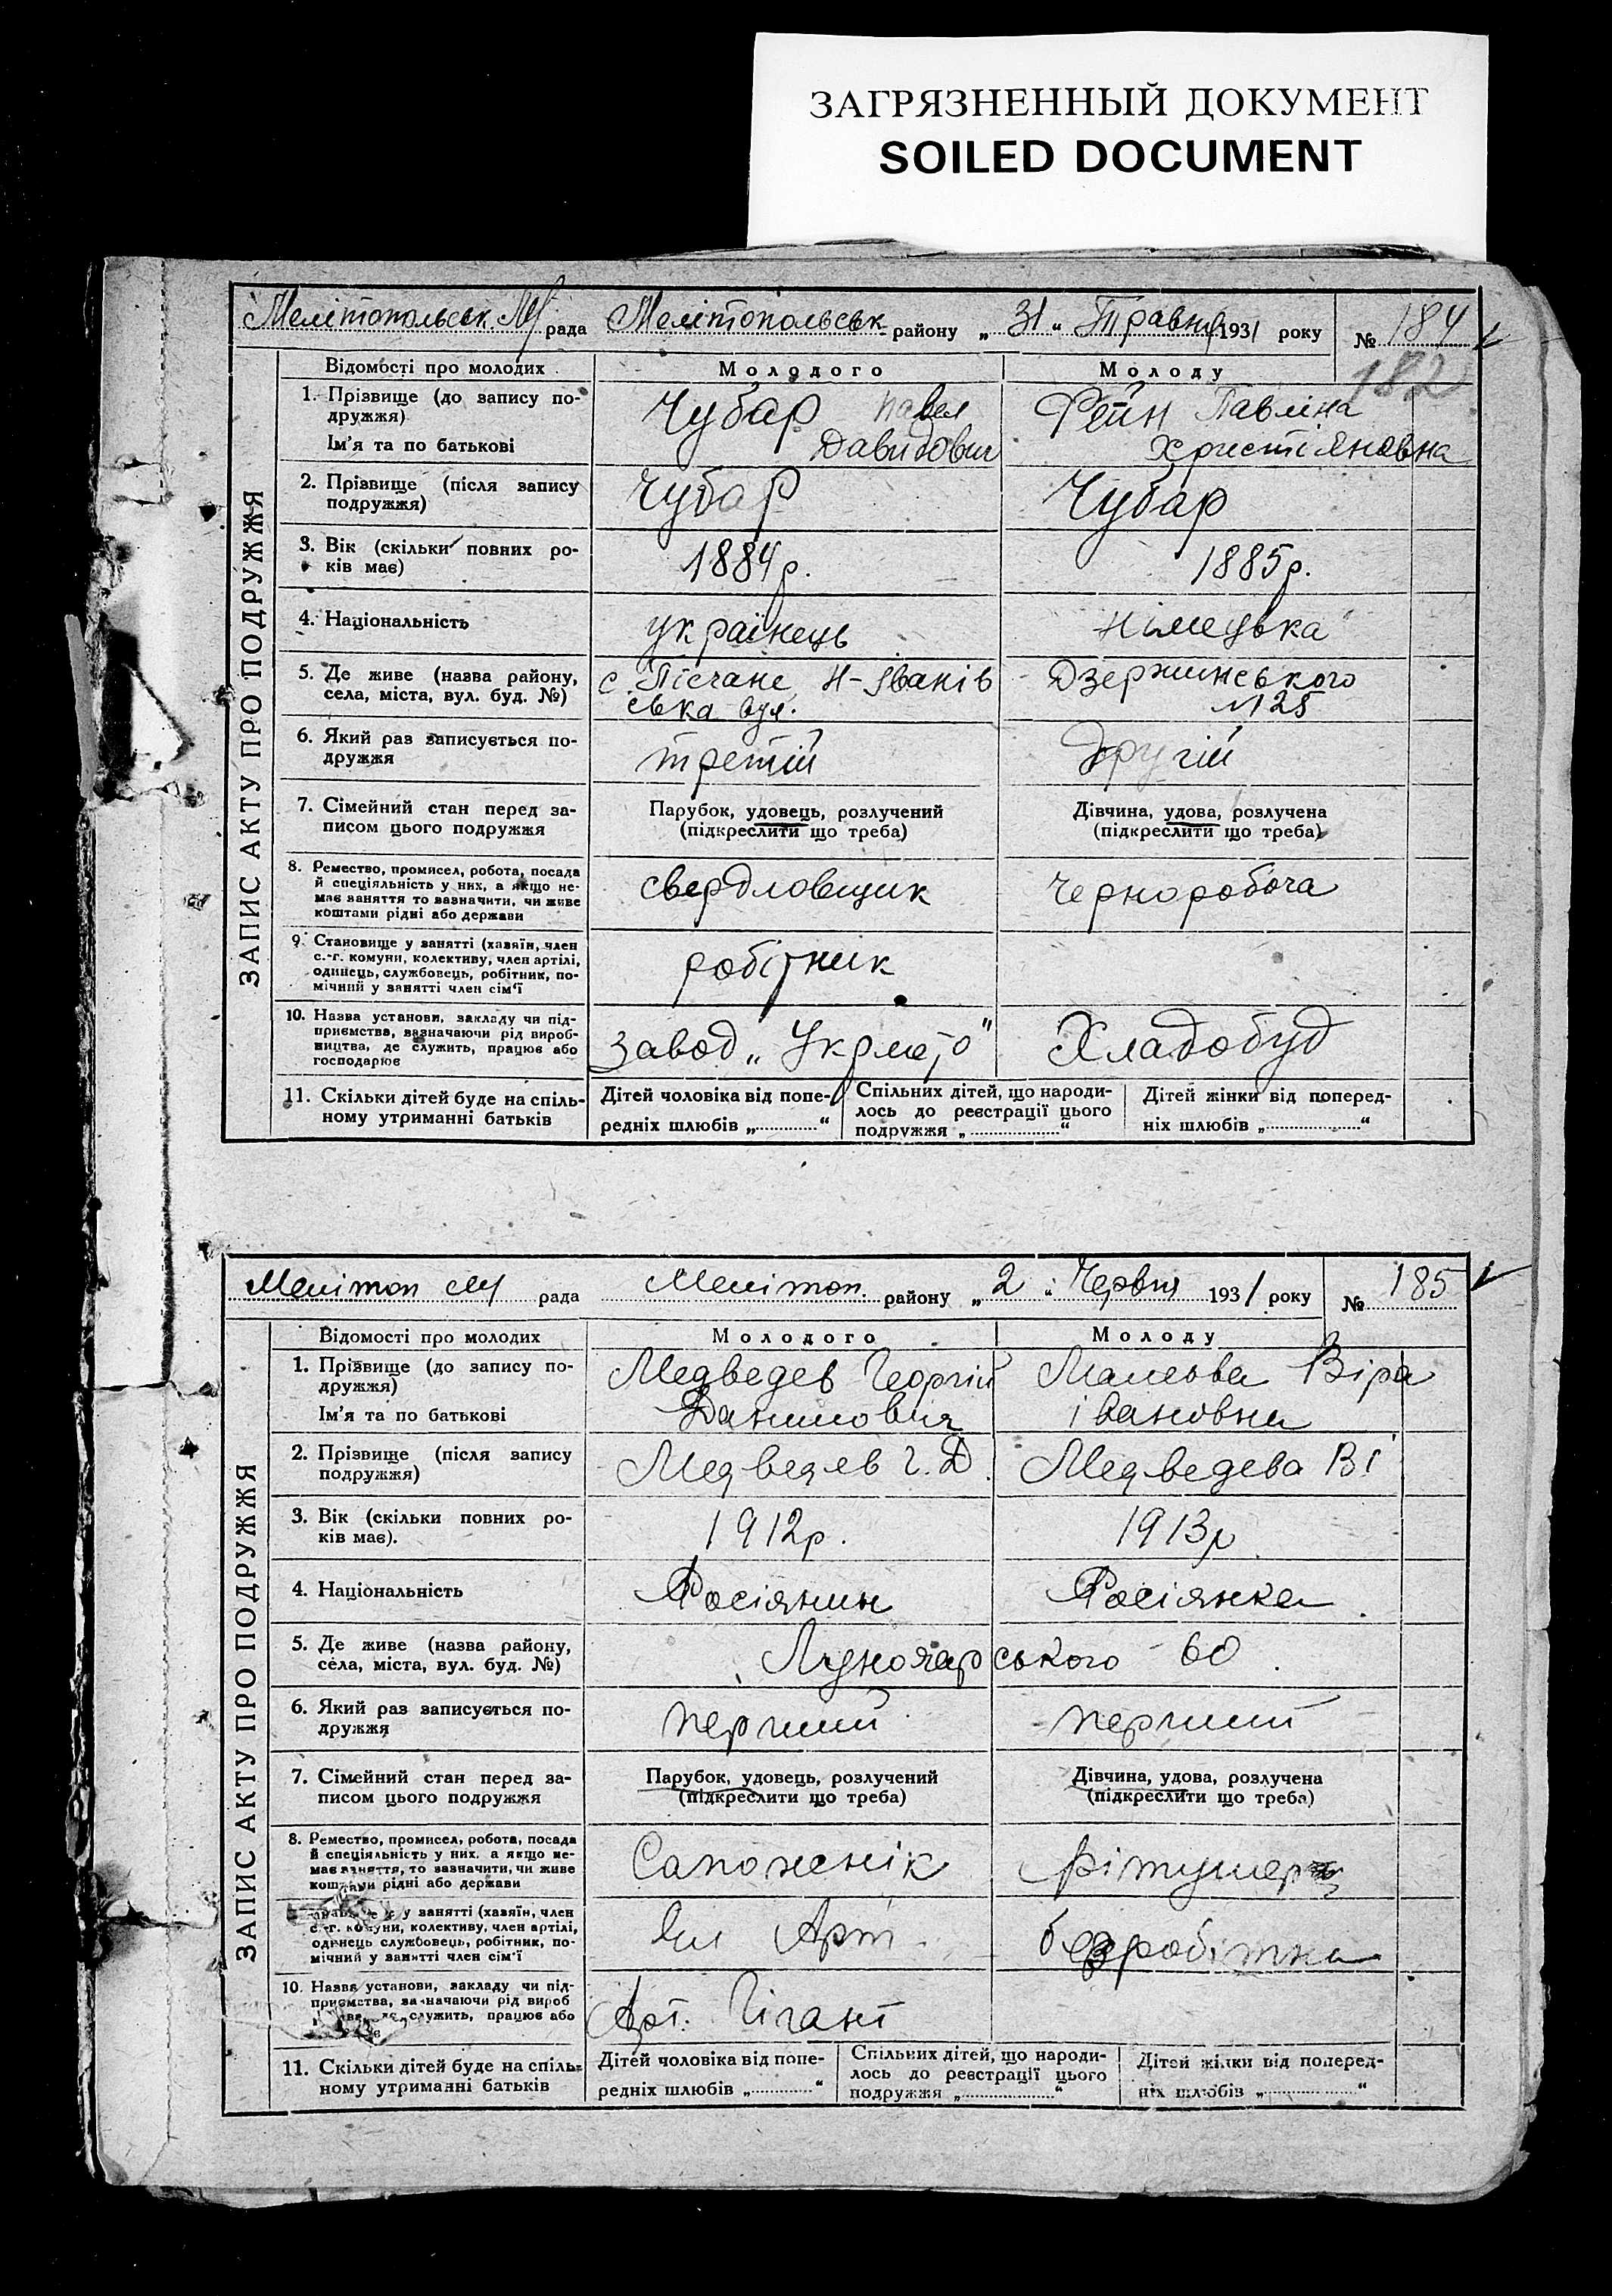 ЗАГРЯЗНЕННЫЙ ДОКУМЕНТ
SOILED DOCUMENT
Мелітопольськ. М/ рада Мелітопольськ району „ 31 “ Травня 1931 року № 184
182
ЗАПИС АКТУ ПРО ПОДРУЖЖЯ
Відомості про молодих Молодого Молоду
1. Прізвище (до запису по-
дружжя)
Ім'я та по батькові
Чубар Павел
Давидович
Фейн Павліна
Християновна
2. Прізвище (після запису
подружжя)
Чубар
Чубар
3. Вік (скільки повних ро-
ків має)
1884 р.
1885 р.
4. Національність
українець
німецька
5. Де живе (назва району,
села, міста, вул. буд. №)
с. Пісчане, Н-Іванів
ська вул.
Дзержинського
№ 125
6. Який раз записується по-
дружжя
третій
другій
7. Сімейний стан перед за-
писом цього подружжя
Парубок, удовець, розлучений
(підкреслити що треба)
Дівчина, удова, розлучена
(підкреслити що треба)
8. Ремество, промисел, робота, посада
й спеціяльність у них, а якщо не-
має заняття то зазначити, чи живе
коштами рідні або держави
свердловщик
Черноробоча
9. Становище у занятті (хазяїн, член
с.-г. комуни, колективу, член артілі,
одинець, службовець, робітник, по-
мічний у занятті член сім'ї
робітник
10. Назва установи, закладу чи під-
приємства, вазначаючи рід вироб-
ництва, де служить, працює або
господарює
завод „
Хладобуд
11. Скільки дітей буде на спіль-
ному утриманні батьків
Дітей чоловіка від попе-
редніх шлюбів „ “
Спільних дітей, що народи-
лось до реєстрації цього
подружжя „ “
Дітей жінки від поперед-
ніх шлюбів „ “
Мелітоп М/ рада Мелітоп. району „ 2 “ Червня 1931 року № 185
ЗАПИС АКТУ ПРО ПОДРУЖЖЯ
Відомості про молодих Молодого Молоду
1. Прізвище (до запису по-
дружжя)
Ім'я та по батькові
Медведев Георгій
Данилович
Малеева Віра
Івановна
2. Прізвище (після запису
подружжя)
Медведев Г. Д.
Медведева В І
3. Вік (скільки повних ро-
ків має).
1912 р.
1913 р
4. Національність
Росіянин
Росіянка
5. Де живе (назва району,
села, міста, вул. буд. №)
Луначарського 60.
6. Який раз записується по-
дружжя
перший
перший
7. Сімейний стан перед за-
писом цього подружжя
Парубок, удовець, розлучений
(підкреслити що треба)
Дівчина, удова, розлучена
(підкреслити що треба)
8. Ремество, промисел, робота, посада
й спеціяльність у них, а якщо не-
має заняття, то зазначити, чи живе
коштами рідні або держави
Сапожнік
у занятті (хазяїн, член
с.-г. комуни, колективу, член артілі,
одинець службовець, робітник, по-
мічний у занятті член сім'ї
Чл Арт.
безробітна
10. Назва установи, закладу чи під-
приємства, зазначаючи рід вироб
служить, працює або
Арт. Гігант
11. Скільки дітей буде на спіль-
ному утриманні батьків
Дітей чоловіка від попе-
редніх шлюбів „ “
Спільних дітей, що народи-
лось до реєстрації цього
подружжя „ “
Дітей жінки від поперед-
ніх шлюбів „ “